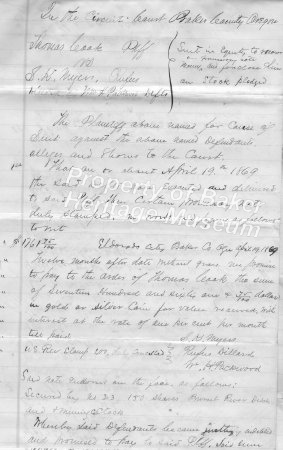 In the Circuit Court Baker County Oregon
Thomas Cook Plff
vs
S. H. Myers,
Wm H Packwood Defts
Suit in Equity to recover
a Promissory note
and foreclose lien
on Stock pledged
The Plaintiff above named for Cause of
Suit against the above named Defendants
alleges and Shows to the Court.
That on or about April 19th 1869
the said
and delivered
to said Plff their Certain promissory note
duly Stamped in words and figures as follows
to wit
$1761 Eldorado City, Baker Co, Ogn April 19, 1869
Twelve months after date without grace we promise
to pay to the order of Thomas Cook the sum
of Seventeen hundred and sixty one & dollars
in gold or silver Coin for value received, with
interest at the rate of one per cent per month
till paid
S. H. Myers
U.S. Rev Stamp Rufus Dillard
Wm H Packwood
Said note endorsed on the face as follows:
Secured by No 33, 150 Shares Burnt River Ditch
and Mining Stock
Whereby Said Defendants became jointly indebted
and promised to pay to said Plff. Said sum
Property of Baker
Heritage Museum